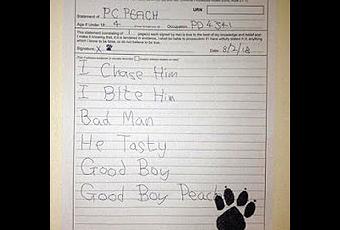 URN
Statement of PC PEACH
Age if under 18 4 Occupation PD 4341
This statement consisting of 1 page(s) each signed by me is true to the best of my knowledge and belief and
I make it knowing that, if it is tendered in evidence, I shall be liable to prosecution if I have wilfully stated in it, anything
which I know to be false, or do not believe to be true.
Signature X Date 8/2/18
I Chase Him
I Bite Him
Bad Man
He Tasty
Good Boy
Good Boy Peach